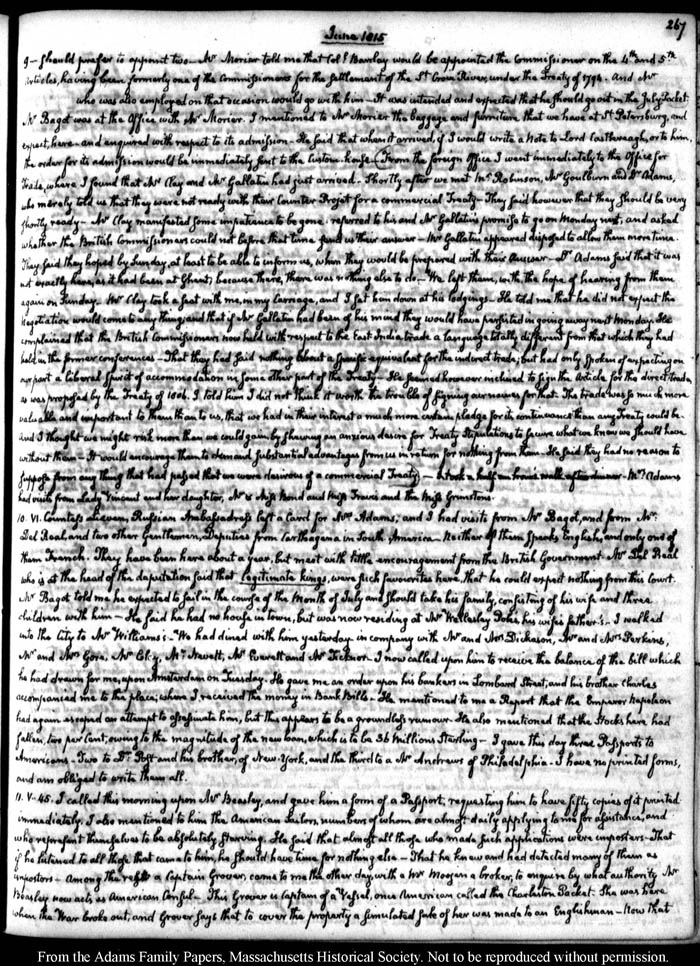 267
June 1815
9 — should prefer to appoint two — Mr Morier told me that Col! Barclay would be appointed the Commissioner on the 4th and 5th
Articles, having been formerly one of the Commissioners for the settlement of the St Croix River, under the Treaty of 1794. And Mr
who was also employed on that occasion would go with him — It was intended and expected that he should go out in the July Packet
Mr Bagot was at the Office with Mr Morier. I mentioned to Mr Morier the baggage and furniture that we have at St Petersburg, and
expect, here — and enquired with respect to its admission — He said that when it arrived, if I would write a Note to Lord Castlereagh, or to him,
the order for its admission would be immediately sent to the Custom-house — From the foreign Office I went immediately to the Office for
Trade, where I found that Mr Clay and Mr Gallatin had just arrived. Shortly after we met Mr Robinson, Mr Goulburn and Dr Adams,
who merely told us that they were not ready with their Counter Projet for a commercial Treaty — They said however that they should be very
shortly ready — Mr Clay manifested some impatience to be gone; referred to his and Mr Gallatin's promise to go on Monday next, and asked
whether the British Commissioners could not before that time send us their answer — Mr Gallatin appeared disposed to allow them more time.
They said they hoped by Sunday, at least to be able to inform us, when they would be prepared with their Answer — Dr Adams said that it was
not exactly here, as it had been at Ghent; because there, there was nothing else to do — We left them, with the hope of hearing from them
again on Sunday. Mr Clay took a seat with me, in my Carriage, and I set him down at his lodgings — He told me that he did not expect the
negotiation would come to any thing; and that if Mr Gallatin had been of his mind they would have persisted in going away next Monday. He
complained that the British Commissioners now held with respect to the East India trade a language totally different from that which they had
held in the former conferences — That they had said nothing about a specific equivalent for the indirect trade; but had only spoken of expecting on
our part a liberal spirit of accommodation in some other part of the Treaty — He seemed however inclined to sign the Article for the direct trade
as was proposed by the Treaty of 1806. I told him I did not think it worth the trouble of signing our names for that. The trade was so much more
valuable and important to them than to us, that we had in their interest a much more certain pledge for its continuance than any Treaty could be
and I thought we might risk more than we could gain by shewing an anxious desire for Treaty stipulations to secure what we knew we should have
without them — It would encourage them to demand substantial advantages from us in return for nothing from them — He said they had no reason to
suppose from any thing that had passed that we were desirous of a commercial Treaty — I took a half an hour's walk after dinner — Mrs Adams
had visits from Lady Vincent and her daughter, Mr & Miss Bond and Miss Travis and the Miss Grimstons.
10. VI. Countess Lieven, Russian Ambassadress left a card for Mrs Adams; and I had visits from Mr Bagot, and from Mr
Del Real, and two other Gentlemen, Deputies from Carthagena in South America — Neither of them speaks English, and only one of
them French. They have been here about a year, but meet with little encouragement from the British Government. Mr Del Real
who is at the head of the deputation said that legitimate kings, were such favourites here, that he could expect nothing from this Court.
Mr Bagot told me he expected to sail in the course of the Month of July and should take his family, consisting of his wife and three
children with him — He said he had no house in town, but was now residing at Mr Wellesley Pole's his wife's father's. I walked
into the City to Mr Williams's. — We had dined with him yesterday in company with Mr and Mrs Dickason, Mr and Mrs Perkins,
Mr and Mrs Gore, Mr Clay, Mr Hewett, Mr Everett and Mr Ticknor — I now called upon him to receive the balance of the bill which
he had drawn for me, upon Amsterdam on Tuesday. He gave me an order upon his bankers in Lombard Street; and his brother Charles
accompanied me to the place; where I received the money in Bank Bills. He mentioned to me a Report that the Emperor Napoleon
had again escaped an attempt to assassinate him, but this appears to be a groundless rumour. He also mentioned that the Stocks here had
fallen, two per Cent, owing to the magnitude of the new loan, which is to be 36 Millions Sterling — I gave this day three Passports to
Americans. Two to Dr Post and his brother, of New-York, and the third to a Mr Andrews of Philadelphia. I have no printed forms,
and am obliged to write them all.
11. V-45. I called this morning upon Mr Beasley, and gave him a form of a Passport, requesting him to have fifty copies of it printed
immediately. I also mentioned to him the American Sailors, numbers of whom are almost daily applying to me for assistance, and
who represent themselves to be absolutely starving. He said that almost all those who made such applications were impostors — That
if he listened to all those that came to him, he should have time for nothing else — That he knew and had detected many of them as
impostors — Among the rest a Captain Grover, came to me the other day, with a Mr Morgan a broker, to enquire by what authority Mr
Beasley now acts as American Consul — This Grover is Captain of a Vessel, once American called the Charleston Packet. She was here
when the War broke out, and Grover says that to cover the property a simulated sale of her was made to an Englishman — Now that
From the Adams Family Papers, Massachusetts Historical Society. Not to be reproduced without permission.